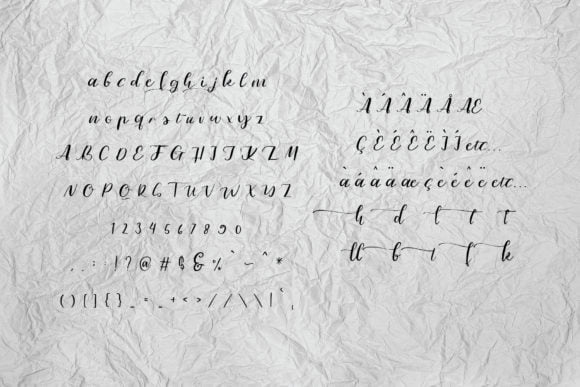 a b c d e f g h i j k l m
n o p q r s t u v w x y z
A B C D E F G H I J K L M
N O P Q R S T U V W X Y Z
1 2 3 4 5 6 7 8 9 0
, . : ; ! ? @ # $ & % ` ~ ^ *
( ) [ ] { } _ = _ + < > / / \ \ |
À Á Â Ä Å Æ
Ç È É Ê Ë Ì Í etc...
à á â ä æ ç è é ê ë etc...
h d t t t
ll b i f k